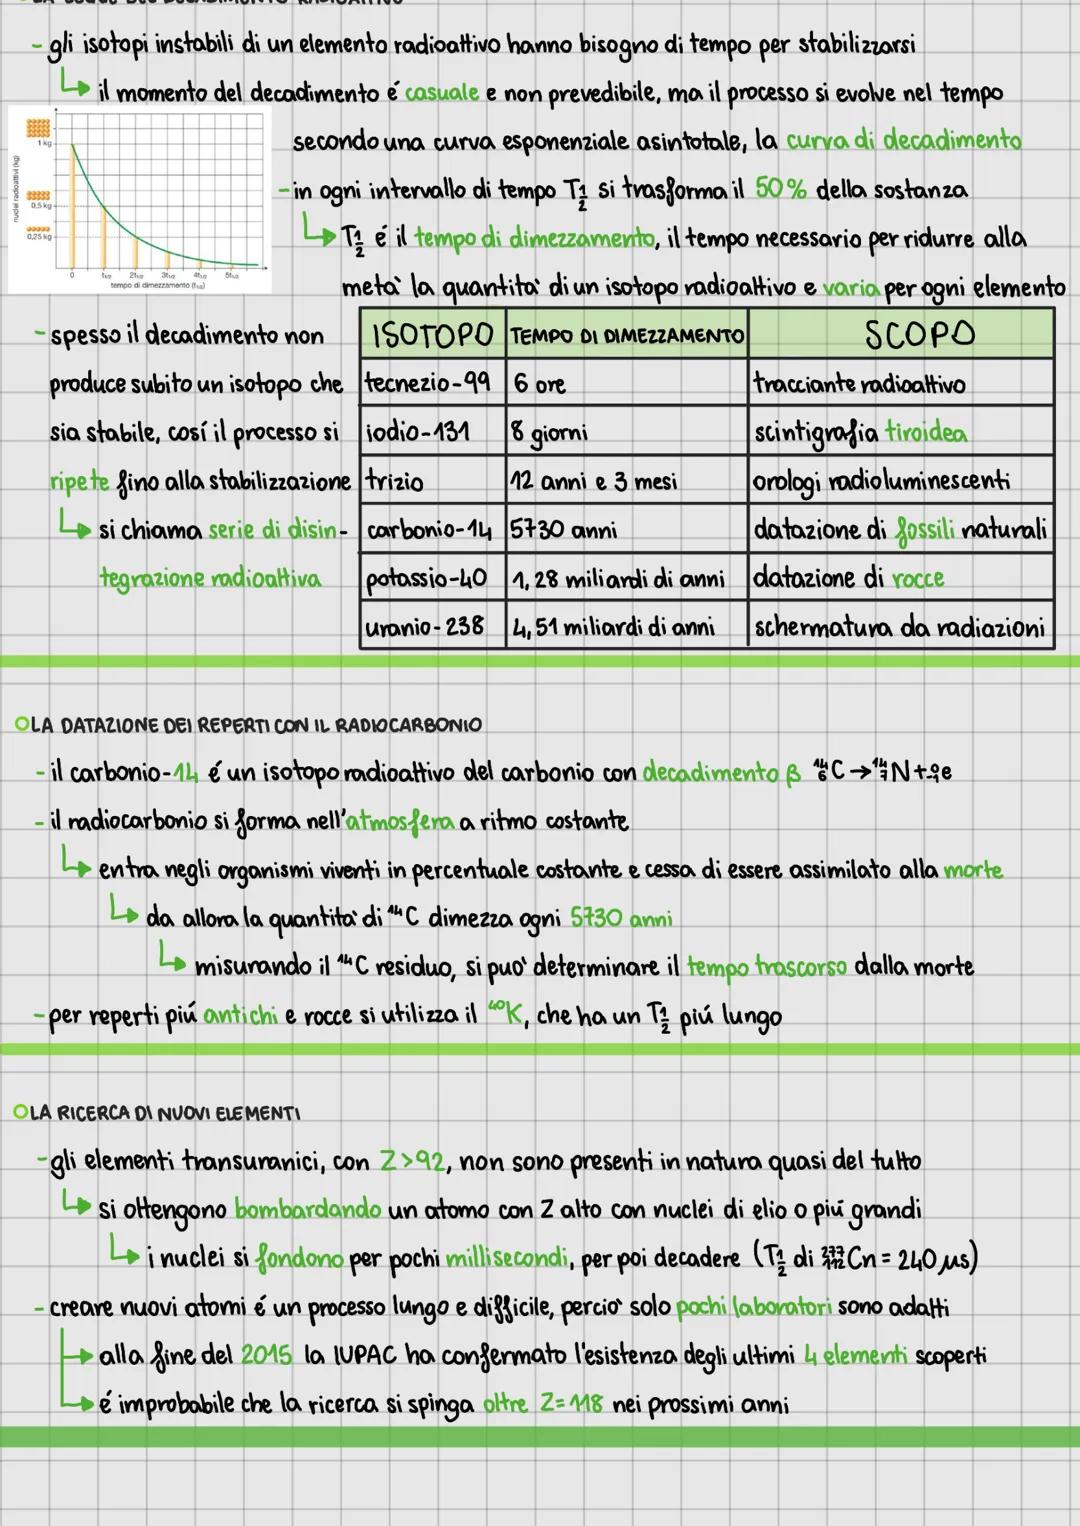 LA LEGGE DEL DECADIMENTO RADIOATTIVO
- gli isotopi instabili di un elemento radioattivo hanno bisogno di tempo per stabilizzarsi
↳ il momento del decadimento é casuale e non prevedibile, ma il processo si evolve nel tempo
secondo una curva esponenziale asintotale, la curva di decadimento
- in ogni intervallo di tempo T½ si trasforma il 50% della sostanza
↳ T½ é il tempo di dimezzamento, il tempo necessario per ridurre alla
metà la quantità di un isotopo radioattivo e varia per ogni elemento
nuclei radioattivi (kg)
1 kg
0,5 kg
0,25 kg
0 t1/2 2t1/2 3t1/2 4t1/2 5t1/2
tempo di dimezzamento (t1/2)
- spesso il decadimento non
produce subito un isotopo che
sia stabile, cosí il processo si
ripete fino alla stabilizzazione
↳ si chiama serie di disin-
tegrazione radioattiva
ISOTOPO TEMPO DI DIMEZZAMENTO SCOPO
tecnezio-99 6 ore tracciante radioattivo
iodio-131 8 giorni scintigrafia tiroidea
trizio 12 anni e 3 mesi orologi radioluminescenti
carbonio-14 5730 anni datazione di fossili naturali
potassio-40 1,28 miliardi di anni datazione di rocce
uranio-238 4,51 miliardi di anni schermatura da radiazioni
LA DATAZIONE DEI REPERTI CON IL RADIOCARBONIO
- il carbonio-14 é un isotopo radioattivo del carbonio con decadimento β ¹⁴₆C → ¹⁴₇N + ⁰₋₁e
- il radiocarbonio si forma nell'atmosfera a ritmo costante
↳ entra negli organismi viventi in percentuale costante e cessa di essere assimilato alla morte
↳ da allora la quantità di ¹⁴C dimezza ogni 5730 anni
↳ misurando il ¹⁴C residuo, si può determinare il tempo trascorso dalla morte
- per reperti piú antichi e rocce si utilizza il ⁴⁰K, che ha un T½ piú lungo
LA RICERCA DI NUOVI ELEMENTI
- gli elementi transuranici, con Z>92, non sono presenti in natura quasi del tutto
↳ si ottengono bombardando un atomo con Z alto con nuclei di elio o piú grandi
↳ i nuclei si fondono per pochi millisecondi, per poi decadere (T½ di ²⁷⁷₁₁₂Cn = 240 µs)
- creare nuovi atomi é un processo lungo e difficile, perciò solo pochi laboratori sono adatti
↳ alla fine del 2015 la IUPAC ha confermato l'esistenza degli ultimi 4 elementi scoperti
↳ é improbabile che la ricerca si spinga oltre Z=118 nei prossimi anni